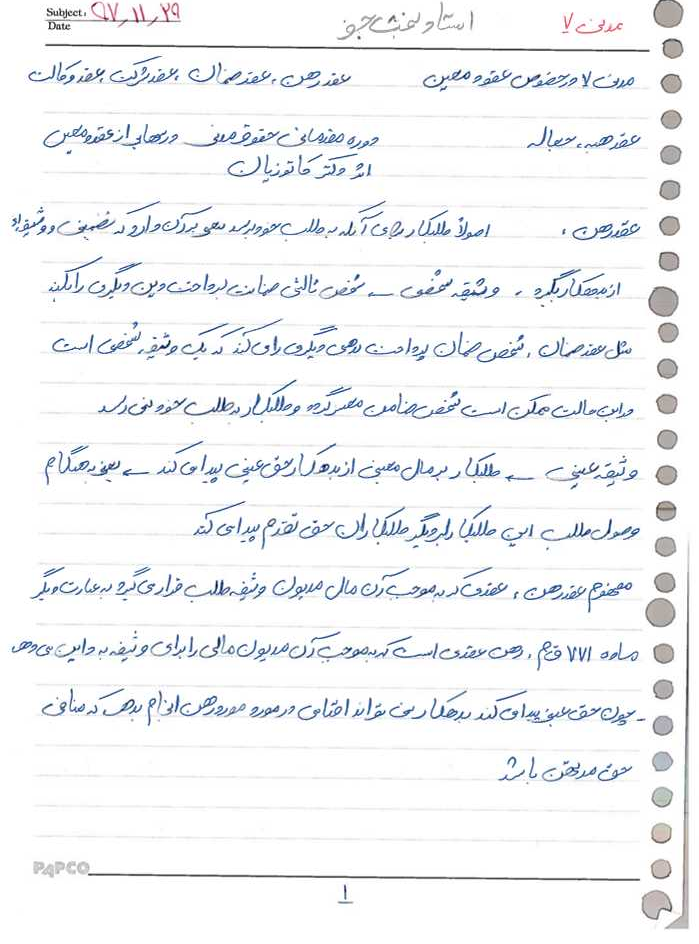 Subject: ۹۷٫۱۱٫۲۹
Date
استاد بخت جو
مدنی ۷
مدنی ۷ در خصوص عقود معین عقد رهن، عقد ضمان، عقد شرکت، عقد وکالت
عقد هبه، جعاله دوره مقدماتی حقوق مدنی درسهایی از عقود معین
اثر دکتر کاتوزیان
عقد رهن: اصولاً طلبکار برای آنکه به طلب خود برسد سعی بر آن دارد که تضمینی و وثیقه‌ای
از بدهکار بگیرد. وثیقه شخصی ← شخص ثالثی ضمانت پرداخت دین دیگری را بکند
مثل عقد ضمان، شخص ضمان پرداخت بدهی دیگری را می کند که یک وثیقه شخصی است
در این حالت ممکن است شخص ضامن معسر گردد و طلبکار به طلب خود نمی رسد
وثیقه عینی ← طلبکار بر مال معینی از بدهکار حق عینی پیدا می کند ← یعنی به هنگام
وصول طلب این طلبکار بر دیگر طلبکاران حق تقدم پیدا می کند
مفهوم عقد رهن: عقدی که به موجب آن مال مدیون وثیقه طلب قرار می گیرد به عبارت دیگر
ماده ۷۷۱ ق.م: رهن عقدی است که به موجب آن مدیون مالی را برای وثیقه به داین می دهد
- چون حق عینی پیدا می کند بدهکار نمی تواند اقدامی در مورد مورد رهن انجام بدهد که منافی
حق مرتهن باشد
PAPCO
۱